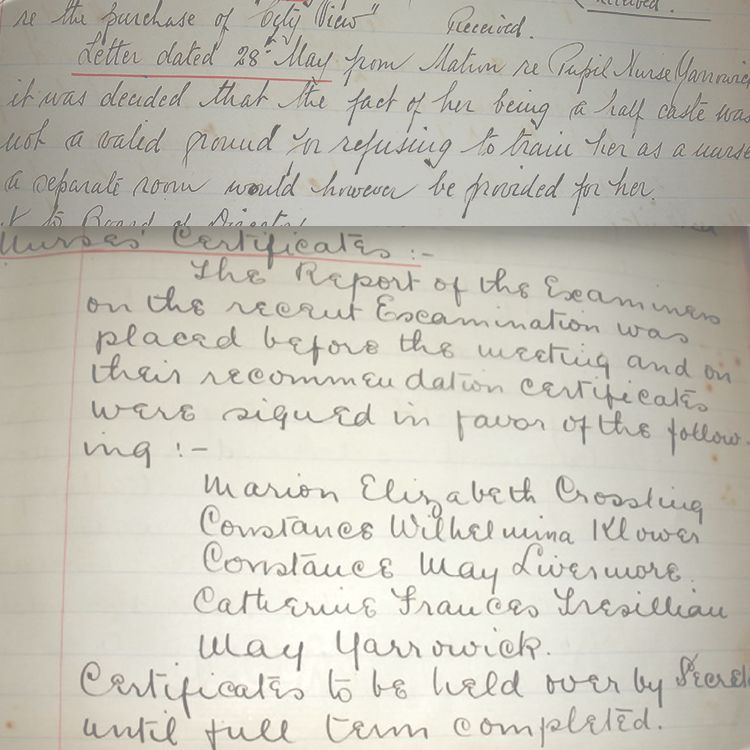 Received.
re the purchase of "Ogly View" Received.
Letter dated 28th May from Matron re Pupil Nurse Yarrowick
it was decided that the fact of her being a half caste was
not a valid ground for refusing to train her as a nurse
a separate room would however be provided for her.
to Board of Directors
Nurses' Certificates :-
The Report of the Examiners
on the recent Escamination was
placed before the meeting and on
their recommendation certificates
were signed in favor of the follow-
ing :-
Marion Elizabeth Crossling
Constance Wilhelmina Klower
Constance May Livermore.
Catherine Frances Tresillian
May Yarrowick.
Certificates to be held over by Secret
until full term completed.